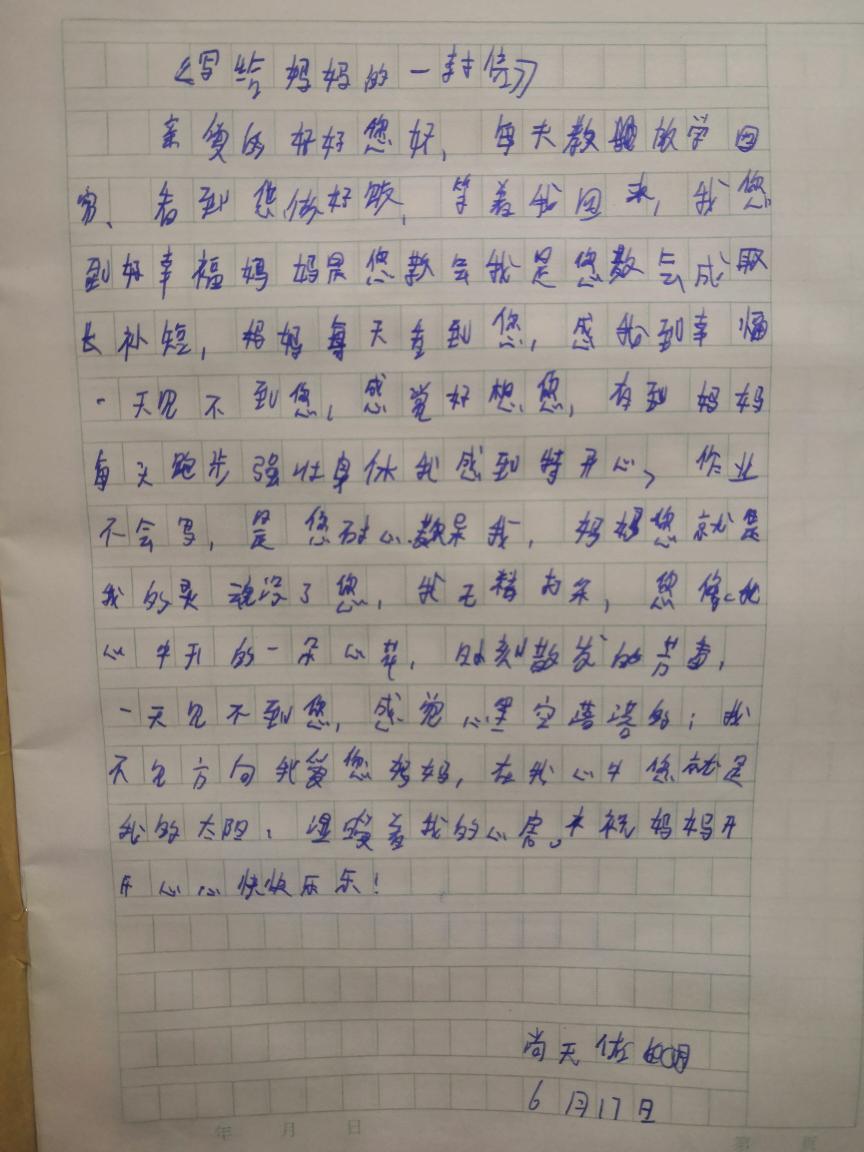 《写给妈妈的一封信》
亲爱的好好您好，每天教放学回
家、看到您做好饭，等着我回来，我您
到好幸福妈妈是您教会我是您教会成取
长补短，妈妈每天看到您，感我到幸福
一天见不到您，感觉好想您，看到妈妈
每天跑步强壮身体我感到特开心，作业
不会写，是您耐心教导我，妈妈您就是
我的灵魂没了您，我无精打采，您像我
心中开的一朵心花，时刻散发的芳香，
一天见不到您，感觉心里空荡荡的；我
不见方向我爱您妈妈，在我心中您就是
我的太阳，温暖着我的心房。祝妈妈开
开心心快快乐乐！
尚天佑
6月17日
年 月 日
第 页